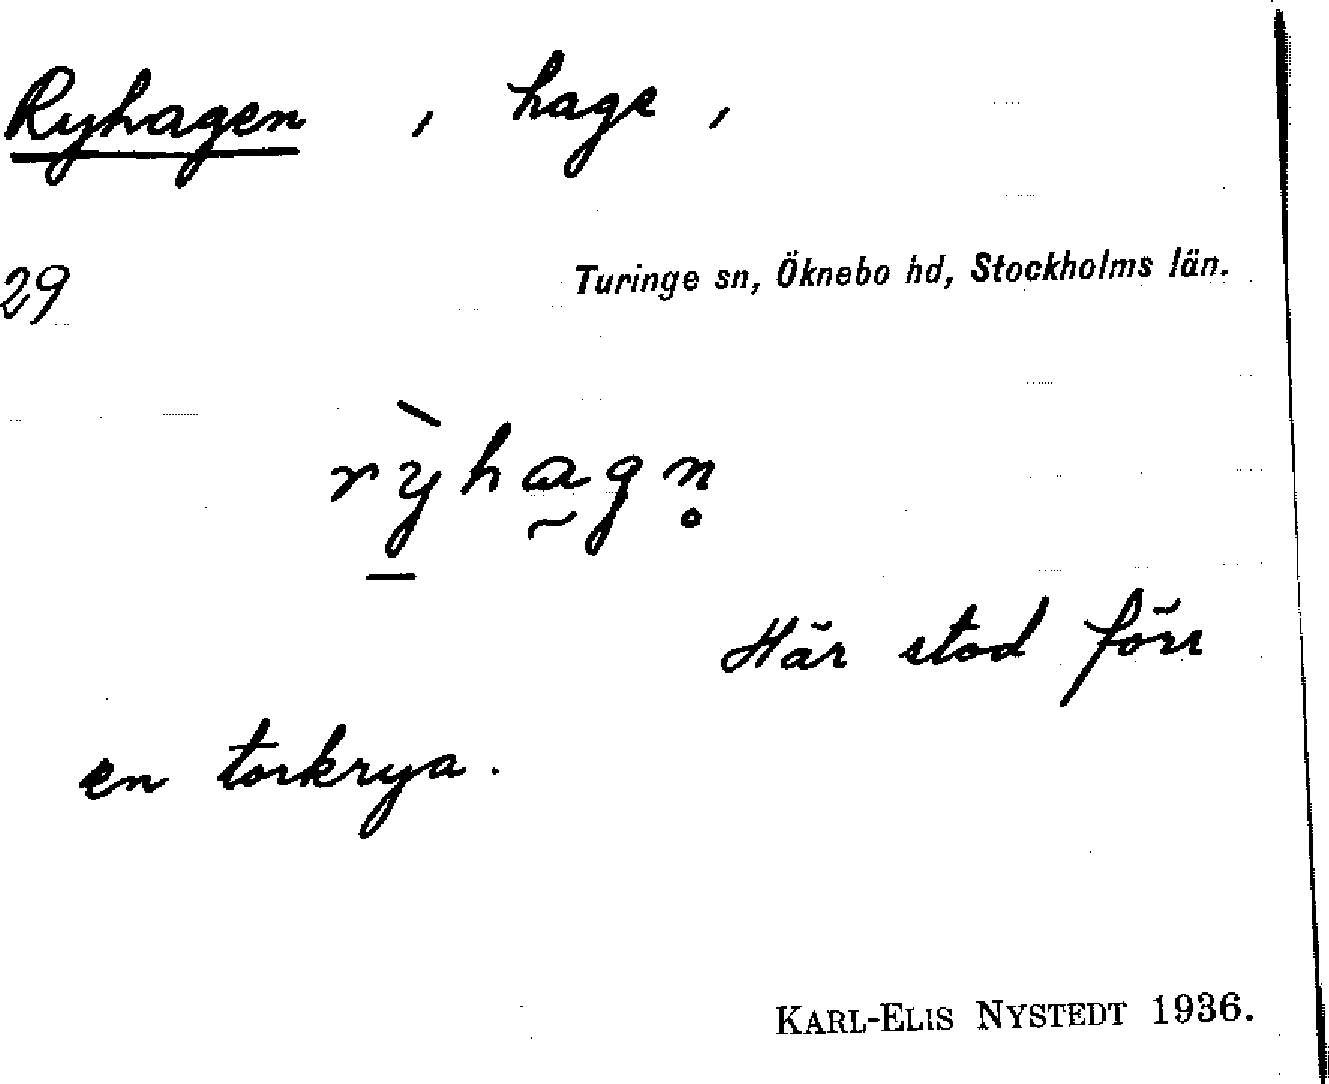 Ryhagen, hage,
29 Turinge sn, Öknebo hd, Stockholms län.
rỳ̱ha̰gn̥
Här stod förr
en torkrya.
KARL-ELIS NYSTEDT 1936.